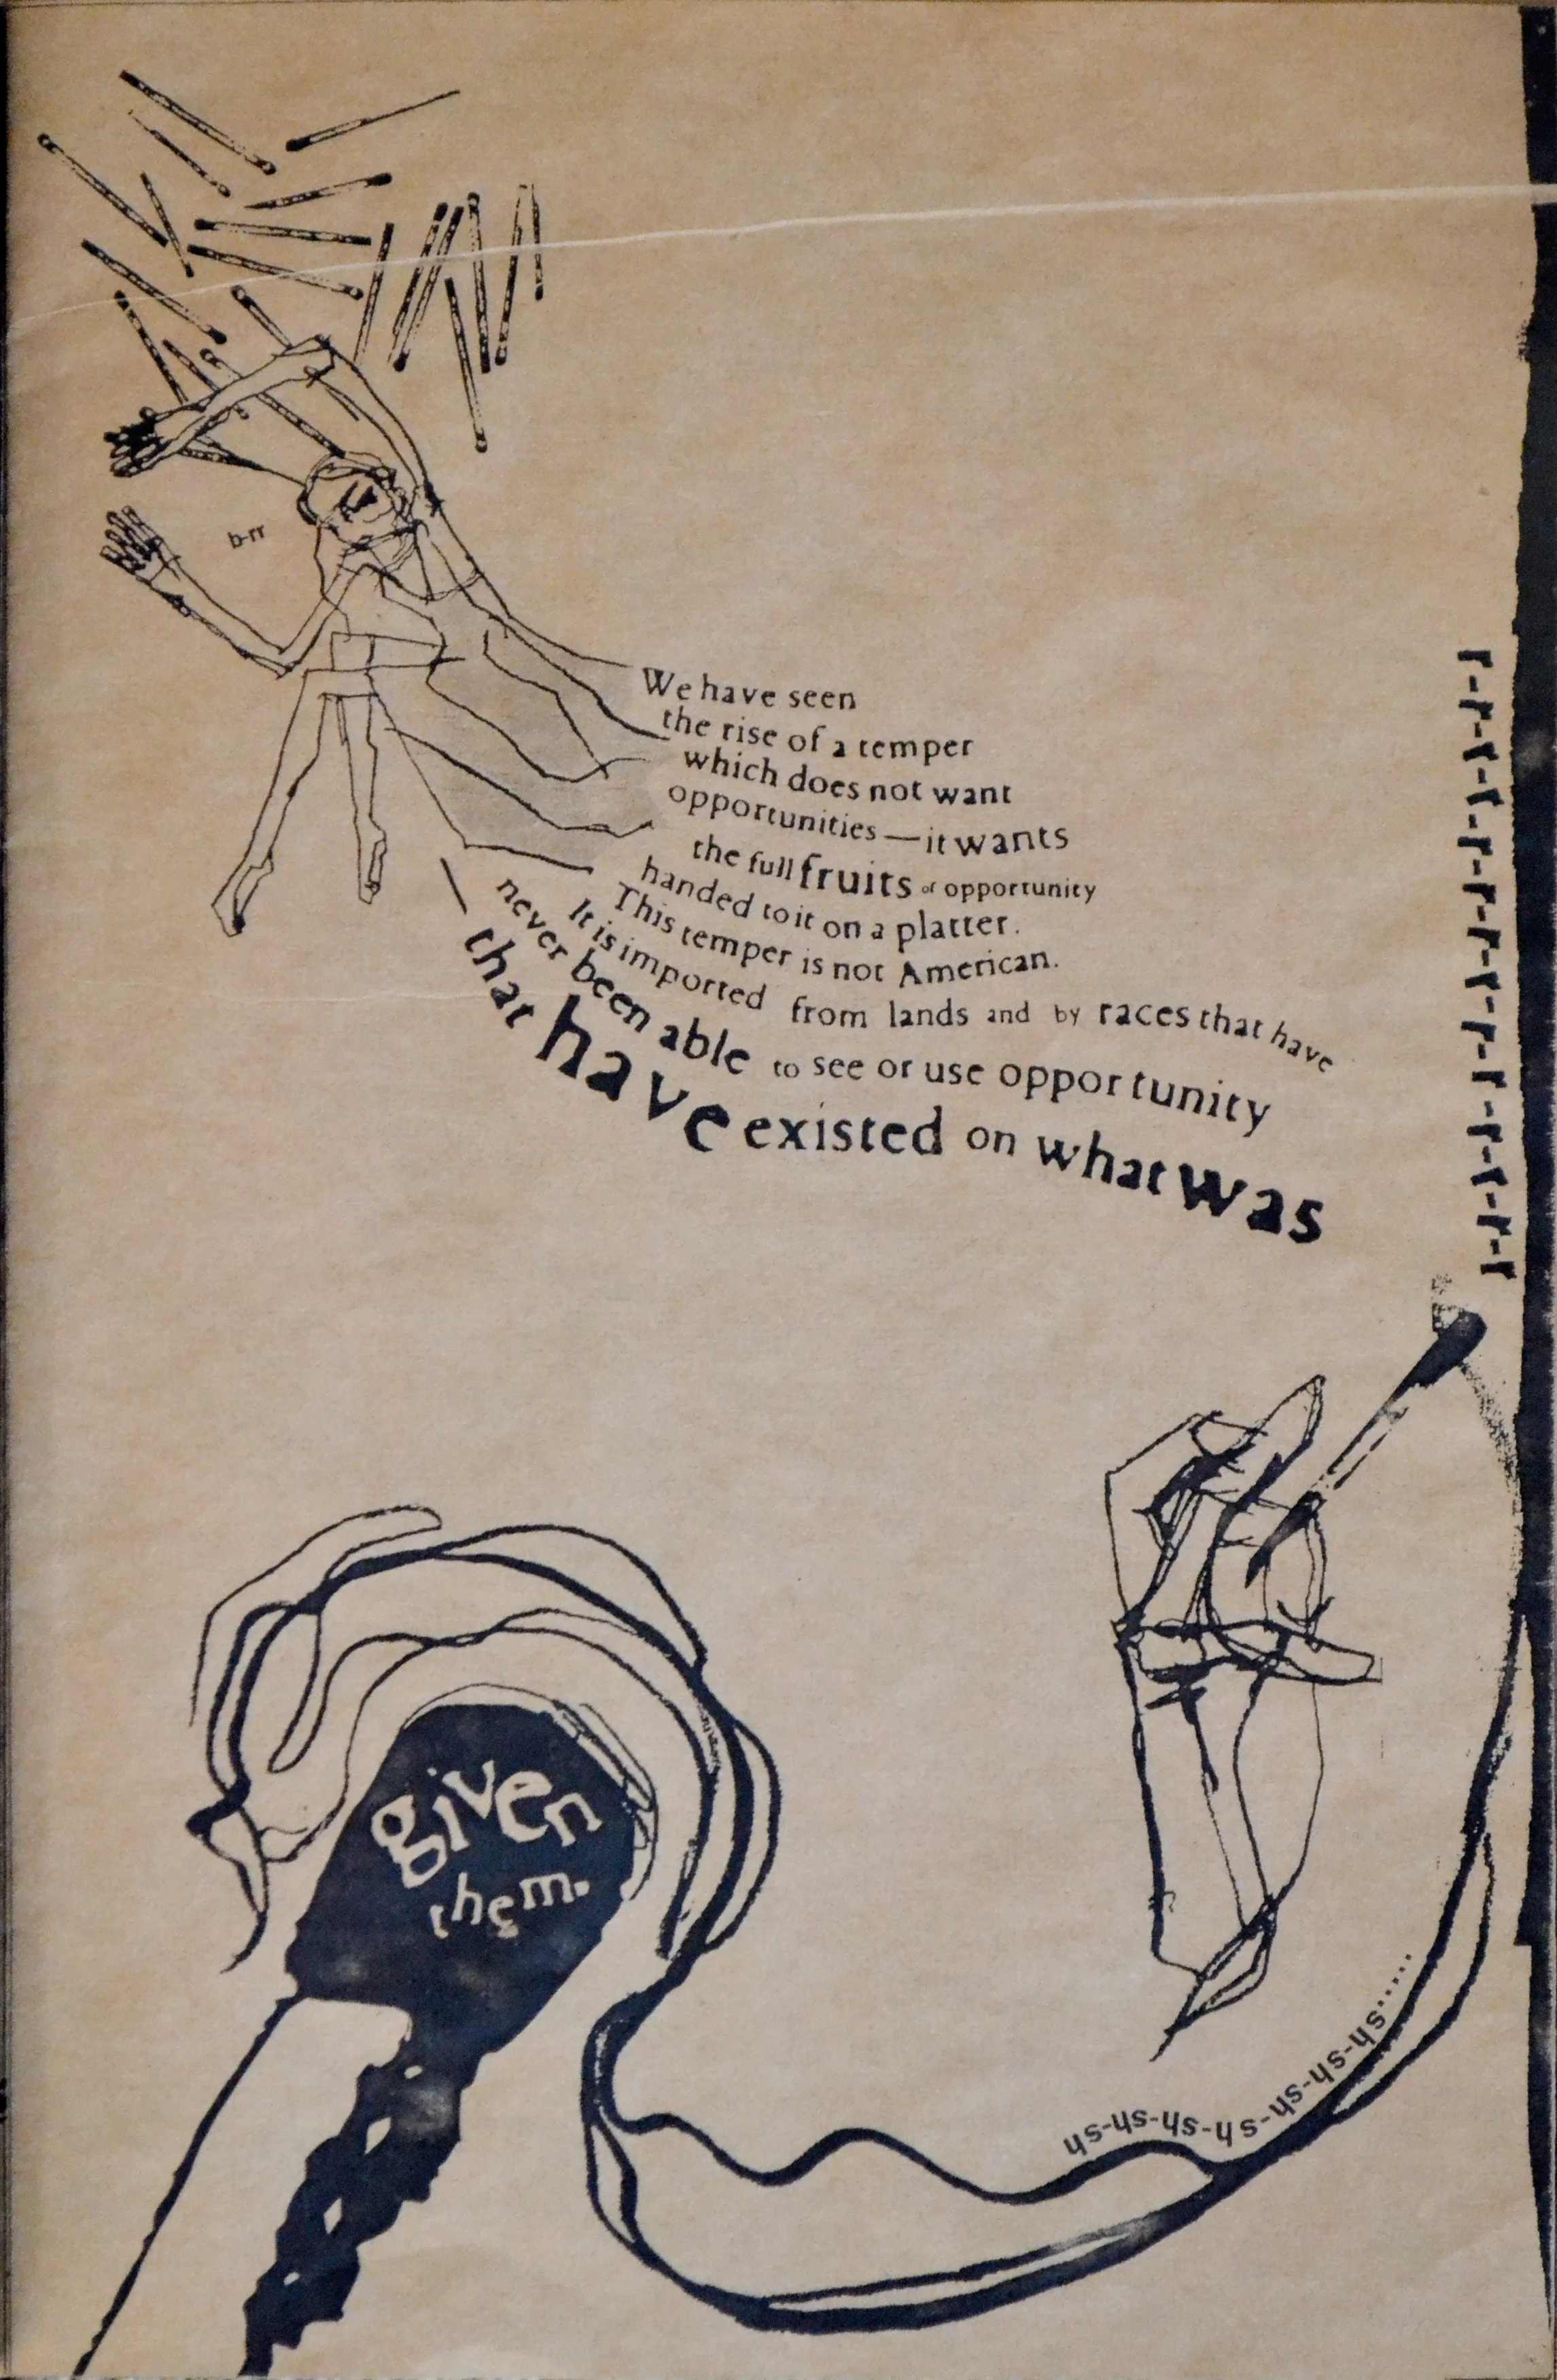 b-rr
We have seen
the rise of a temper
which does not want
opportunities—it wants
the full fruits of opportunity
handed to it on a platter.
This temper is not American.
It is imported from lands and by races that have
never been able to see or use opportunity
— that have existed on what was
given
them.
r-r-r-r-r-r-r-r-r-r-r-r-r-r
sh-sh-sh-sh-sh-sh-sh......